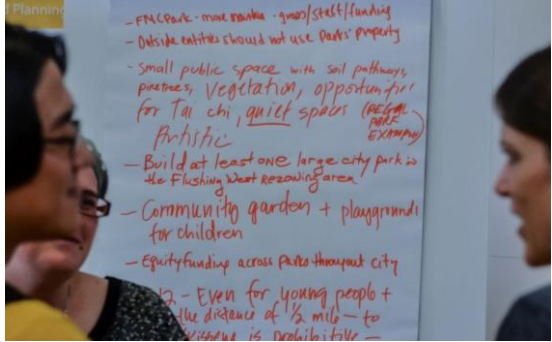 f Planning
- FMCPark - more grass/staff/funding
- Outside entities should not use Parks' property
- Small public space with soil pathways,
pinetrees, vegetation, opportunities
for Tai chi, quiet spaces (REGAL
PARK
EXAMPLE)
Artistic
- Build at least one large city park in
the Flushing West Rezoning area
- Community garden + playgrounds
for children
- Equity funding across parks throughout city
12 - Even for young people +
the distance of 1/2 mile - to
is prohibitive -